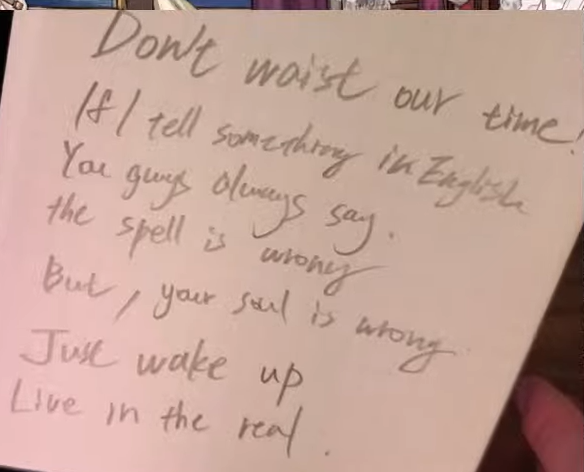 Don't waist our time!
If I tell something in English
You guys always say.
the spell is wrong
But, your soul is wrong.
Just wake up
Live in the real.